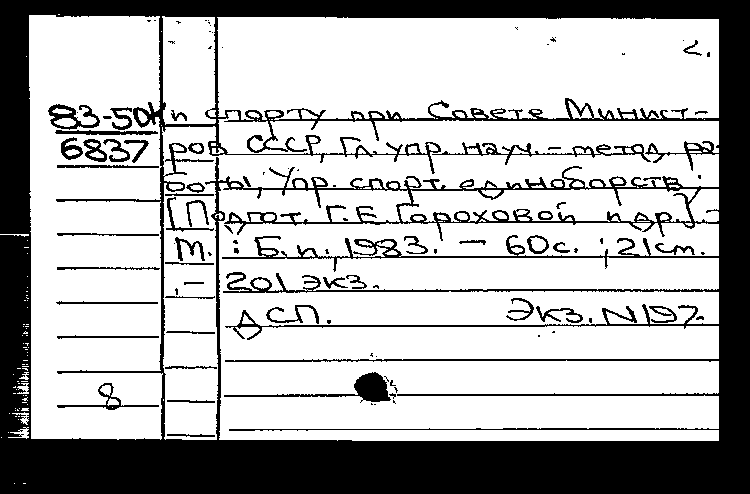 2.
83-50К и спорту при Совете Минист-
6837 ров СССР, Гл. упр. науч.-метод. ра-
боты, Упр. спорт. единоборств;
[Подгот. Г.Е. Гороховой и др.].-
М.: Б.и., 1983. — 60с. ; 21см.
.- 201 экз.
ДСП. Экз. N 197.
8